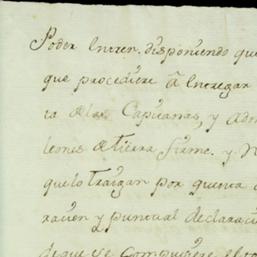 Poder en ten. disponiendo que
que procediere â Entregar
ca de las Capitanas, y Adm
leones de tierra firme. y N
que lo traigan por quenta
racion y puntual declaraci
de que se compusiere el